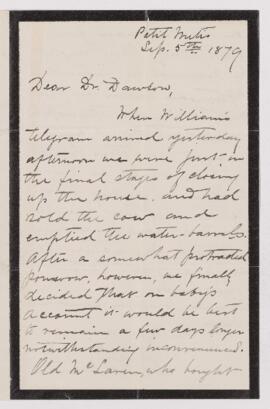 Petit Metis
Sep. 5th 1879
Dear Dr. Dawson,
When William's
telegram arrived yesterday
afternoon we were just in
the final stages of closing
up the house, and had
sold the cow and
emptied the water-barrels.
After a somewhat protracted
powwow, however, we finally
decided that on baby's
account it would be best
to remain a few days longer
notwithstanding inconvenience.
Old McLaren, who bought